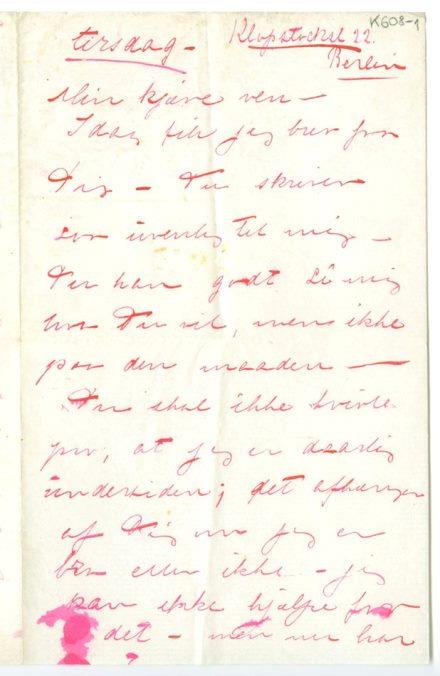 K608-1
tirsdag – Klopstockst 22.
Berlin
Min kjære ven –
Idag fik jeg brev fra
Dig – Du skriver
saa uvenlig til mig –
Du kan godt si mig
hva Du vil, men ikke
paa den maaden –
Du skal ikke tvivle
paa, at jeg er daarlig
undertiden; det afhænger
af Dig om jeg er
bra eller ikke – jeg
kan ikke hjælpe for
det – men nu har